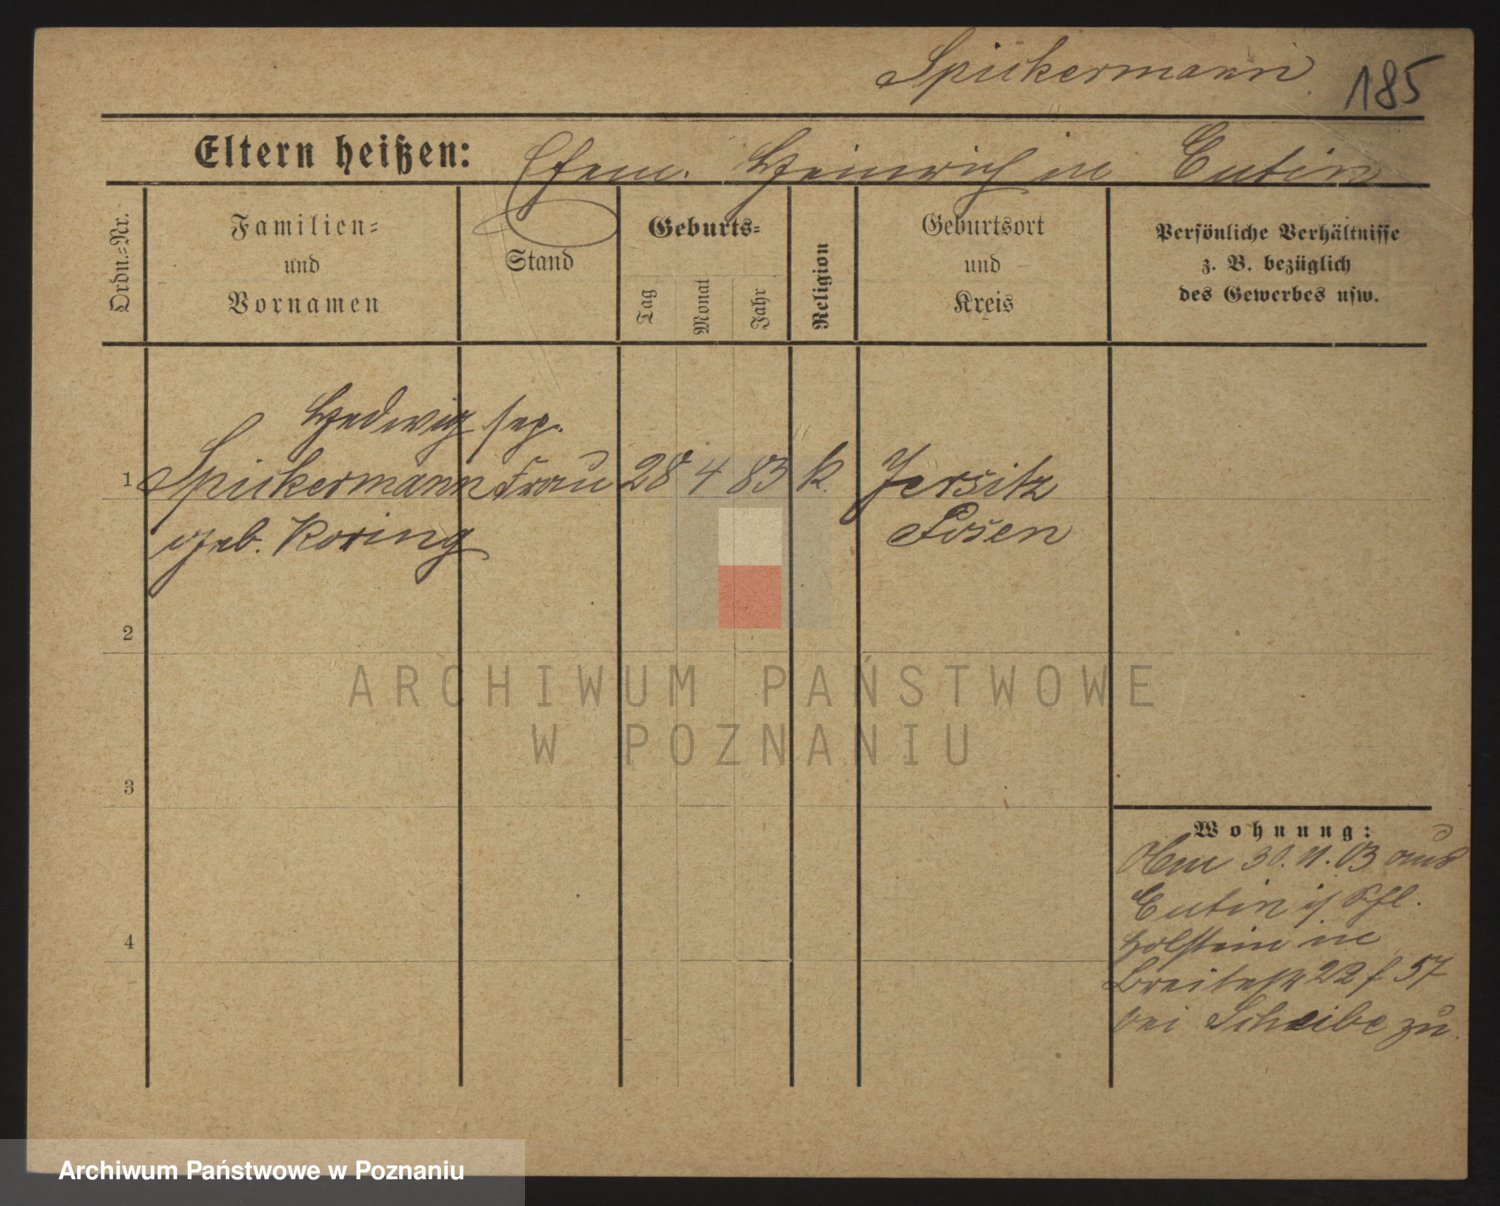 Spickermann 185
Eltern heißen: Ehem. Heinrich in Eutin
Ordn.-Nr.
Familien-
und
Vornamen
Stand
Geburts-
Tag
Monat
Jahr
Religion
Geburtsort
und
Kreis
Persönliche Verhältnisse
z. B. bezüglich
des Gewerbes usw.
Hedwig sep.
1 Spickermann Frau 28 4 83 k. Jersitz
geb. Koring Posen
2
3
4
Wohnung:
30. 11. 03 aus
Eutin
Holstein in
Breitestr 22 57
bei Scheibe zu.
ARCHIWUM PAŃSTWOWE
W POZNANIU
Archiwum Państwowe w Poznaniu